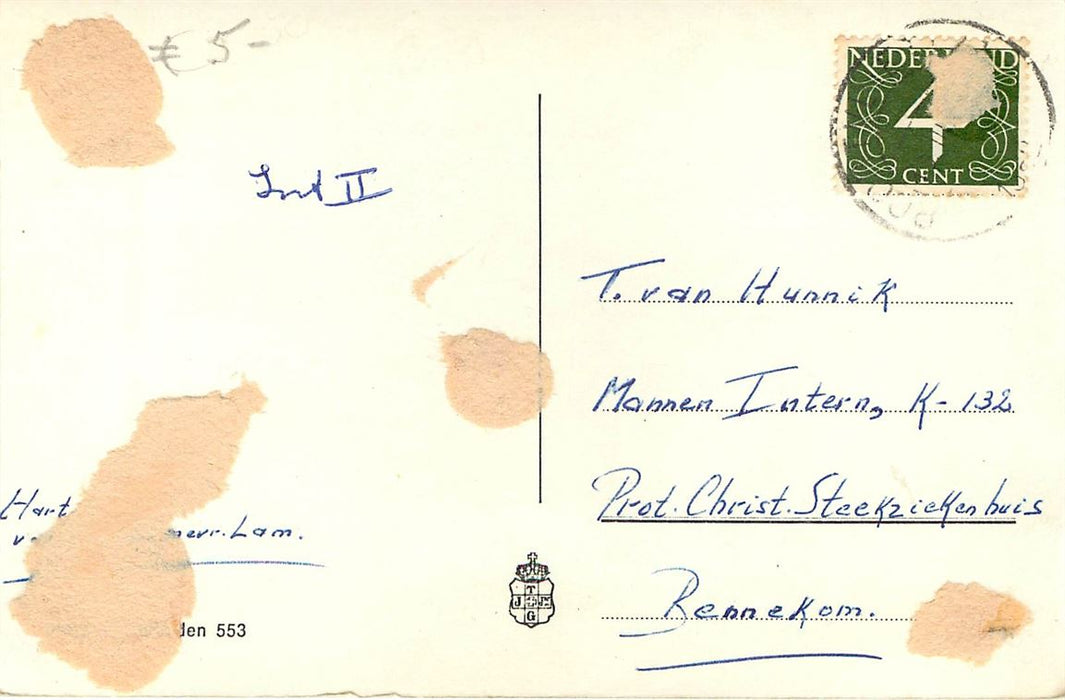 € 5-
NEDERLAND
4
CENT
T. van Hunnik
Mannen Intern, K-132
Prot. Christ. Steekziekenhuis
Bennekom.
Hart
mevr. Lam.
den 553
T
J M
G